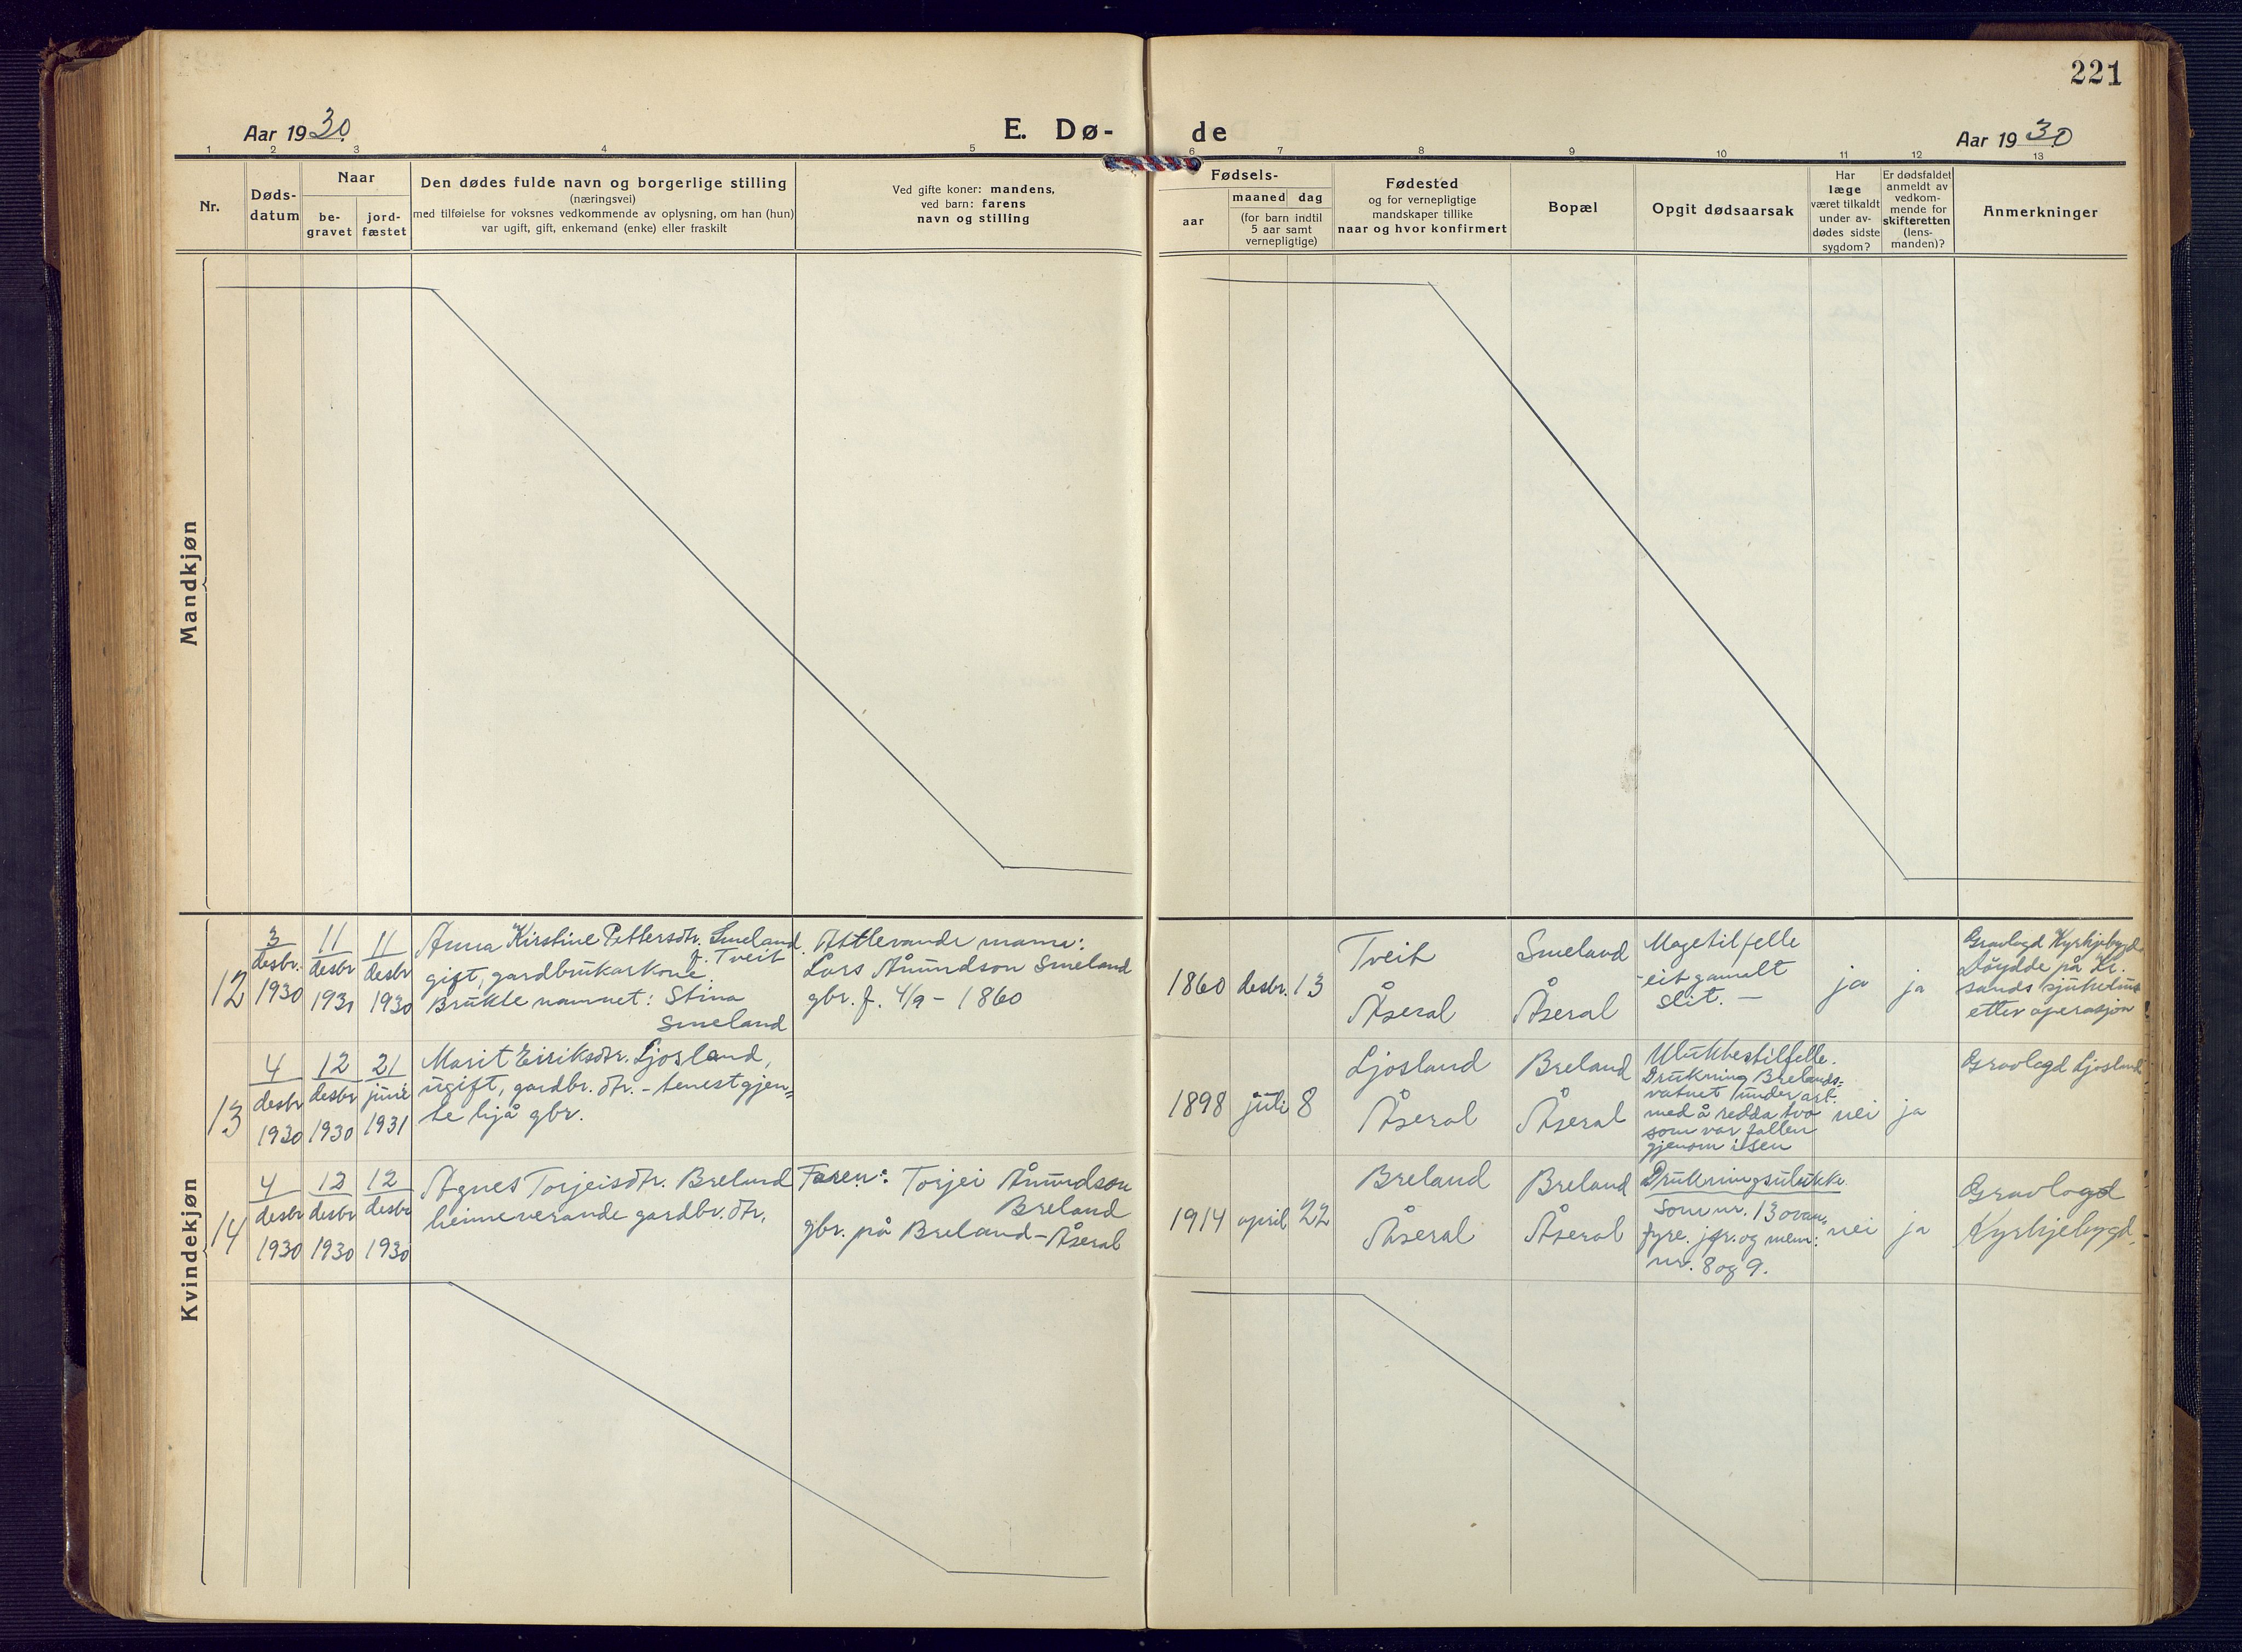 221
Aar 1930
E. Dø-
de
Aar 1930
1 2 3 4 5 6 7 8 9 10 11 12 13
Nr.
Døds-
datum
Naar
be-
gravet
jord-
fæstet
Den dødes fulde navn og borgerlige stilling
(næringsvei)
med tilføielse for voksnes vedkommende av oplysning, om han (hun)
var ugift, gift, enkemand (enke) eller fraskilt
Ved gifte koner: mandens,
ved barn: farens
navn og stilling
Fødsels-
aar
maaned dag
(for barn indtil
5 aar samt
vernepligtige)
Fødested
og for vernepligtige
mandskaper tillike
naar og hvor konfirmert
Bopæl
Opgit dødsaarsak
Har
læge
været tilkaldt
under av-
dødes sidste
sygdom?
Er dødsfaldet
anmeldt av
vedkom-
mende for
skifteretten
(lens-
manden)?
Anmerkninger
Mandkjøn
Kvindekjøn
12
3
desbr.
1930
11
desbr
1930
11
desbr
1930
Anna Kirstine Pettersdtr. Smeland
f. Tveit
gift, gardbrukarkone.
Brukte namnet: Stina
Smeland
Attlevande mann:
Lars Åmundson Smeland
gbr. f. 4/9 - 1860
1860 desbr. 13
Tveit
Åseral
Smeland
Åseral
Magetilfelle
- eit gamalt
slit. —
ja
ja
Gravlagd Kyrkjebygd
Døydde på Kr.
sands sjukehus
etter operasjon
13
4
desbr
1930
12
desbr
1930
21
juni
1931
Marit Eiriksdtr. Ljosland,
ugift, gardbr. dtr. - tenestgjen=
te hjå gbr.
1898 juli 8
Ljosland
Åseral
Breland
Åseral
Ulukkestilfelle.
Drukning Brelands=
vatnet under arb.
med å redda tvo
som var fallen
gjenom isen
nei
ja
Gravlagd Ljosland
14
4
desbr
1930
12
desbr
1930
12
desbr
1930
Agnes Torjeisdtr. Breland
heimeverande gardbr. dtr.
Faren: Torjei Åmundson
Breland
gbr. på Breland - Åseral
1914 april 22
Breland
Åseral
Breland
Åseral
Drukningsulukke
Som nr. 13 ovan=
fyre. jfr. og menn:
nr. 8 og 9.
nei
ja
Gravlagd
Kyrkjebygd.